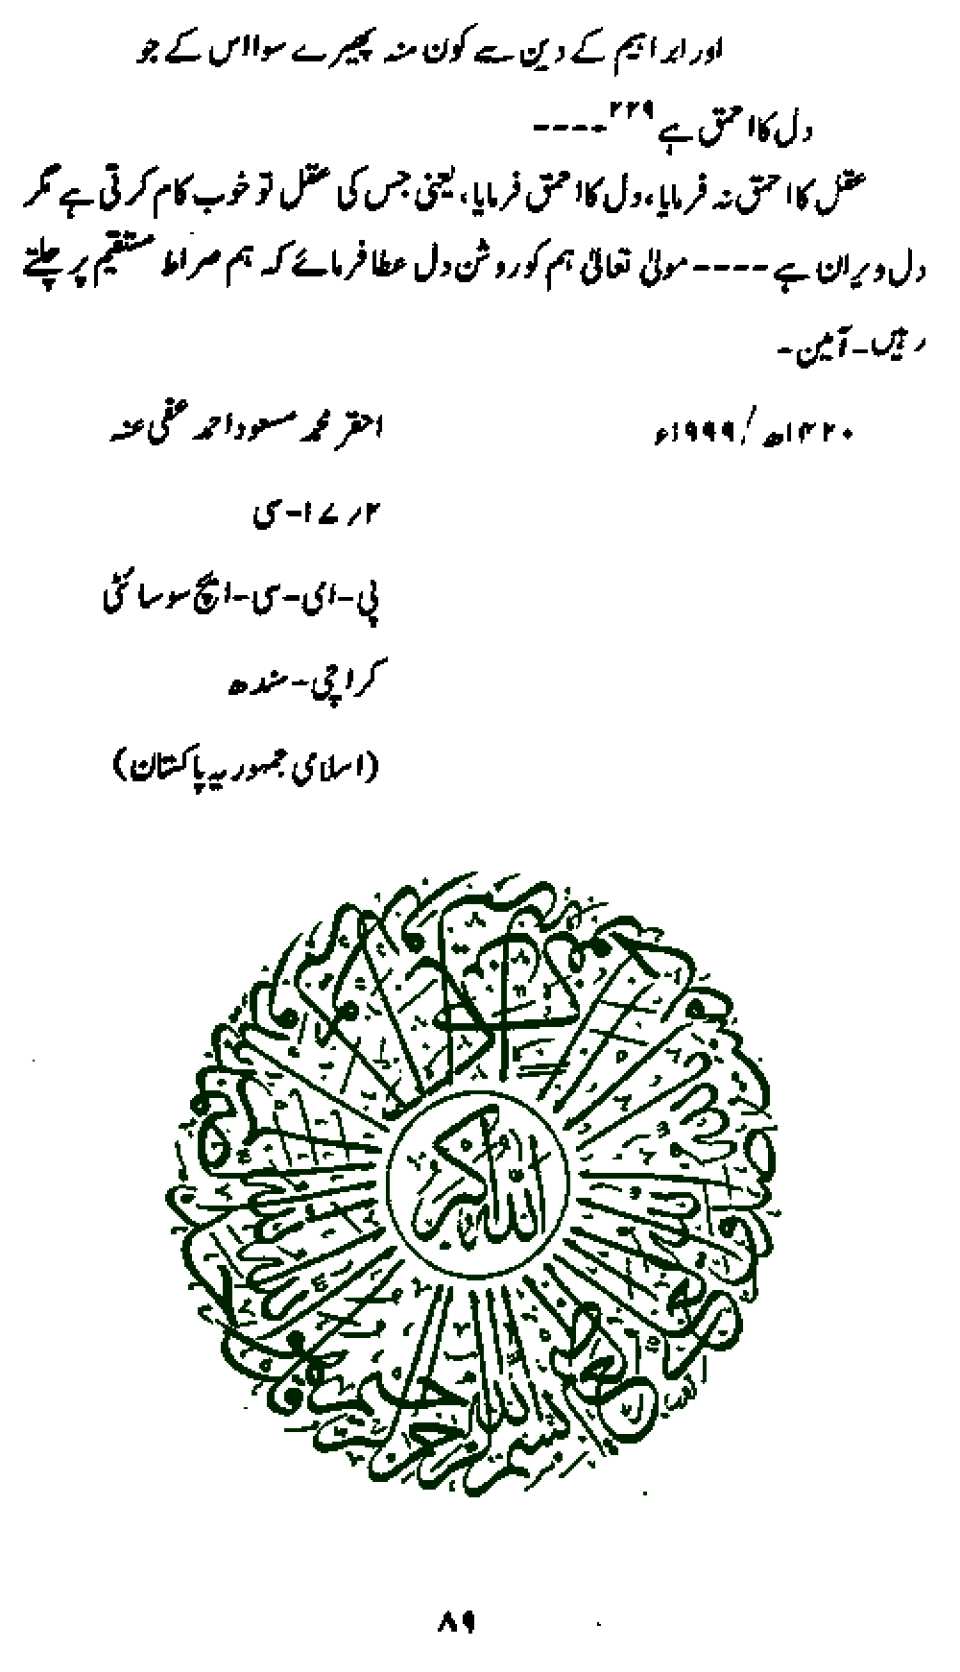 اور ابراہیم کے دین سے کون منہ پھیرے سوا اس کے جو
دل کا احمق ہے ۲۲۹----
عقل کا احمق نہ فرمایا، دل کا احمق فرمایا، یعنی جس کی عقل تو خوب کام کرتی ہے مگر
دل ویران ہے ---- مولیٰ تعالیٰ ہم کو روشن دل عطا فرمائے کہ ہم صراط مستقیم پر چلتے
رہیں۔ آمین۔
۱۴۲۰ھ/۱۹۹۹ء
احقر محمد مسعود احمد عفی عنہ
۲؍۱۷-سی
پی-ای-سی-ایچ سوسائٹی
کراچی- سندھ
(اسلامی جمہوریہ پاکستان)
۸۹